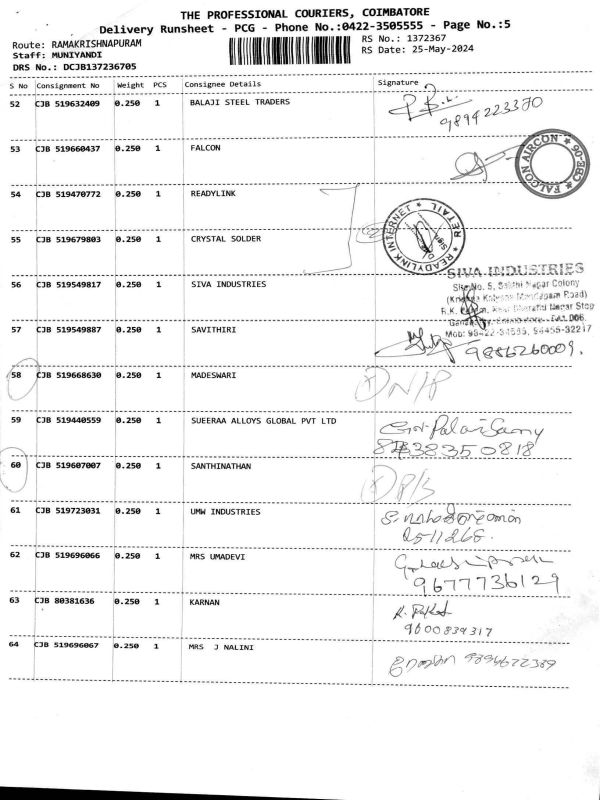 THE PROFESSIONAL COURIERS, COIMBATORE
Delivery Runsheet - PCG - Phone No.:0422-3505555 - Page No.:5
Route: RAMAKRISHNAPURAM
Staff: MUNIYANDI
DRS No.: DCJB137236705
RS No.: 1372367
RS Date: 25-May-2024
S No Consignment No Weight PCS Consignee Details Signature
52 CJB 519632409 0.250 1 BALAJI STEEL TRADERS
9894223370
53 CJB 519660437 0.250 1 FALCON
FALCON AIRCON * CBE-06 *
54 CJB 519470772 0.250 1 READYLINK
READYLINK INTERNET * RETAIL *
Sign
55 CJB 519679803 0.250 1 CRYSTAL SOLDER
56 CJB 519549817 0.250 1 SIVA INDUSTRIES
SIVA INDUSTRIES
No. 5, Sakthi Nagar Colony
57 CJB 519549887 0.250 1 SAVITHIRI
9856260009.
58 CJB 519668630 0.250 1 MADESWARI
59 CJB 519440559 0.250 1 SUEERAA ALLOYS GLOBAL PVT LTD
60 CJB 519607007 0.250 1 SANTHINATHAN
61 CJB 519723031 0.250 1 UMW INDUSTRIES
62 CJB 519696066 0.250 1 MRS UMADEVI
9677736129
63 CJB 80381636 0.250 1 KARNAN
9600839317
64 CJB 519696067 0.250 1 MRS J NALINI
9894672389